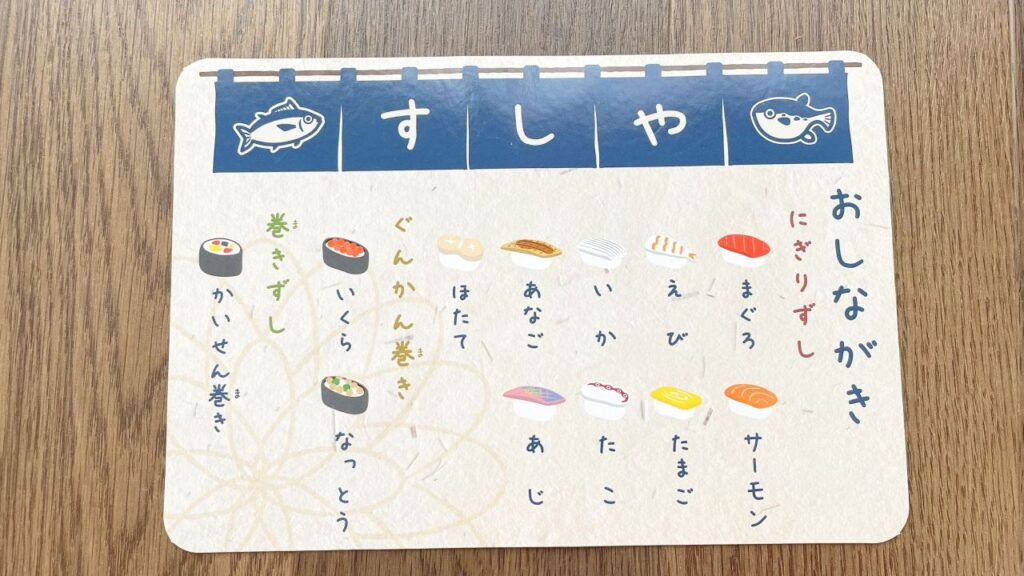 すしや
おしながき
にぎりずし
まぐろ
えび
いか
あなご
ほたて
サーモン
たまご
たこ
あじ
ぐんかん巻き
ま
いくら
なっとう
巻きずし
ま
かいせん巻き
ま